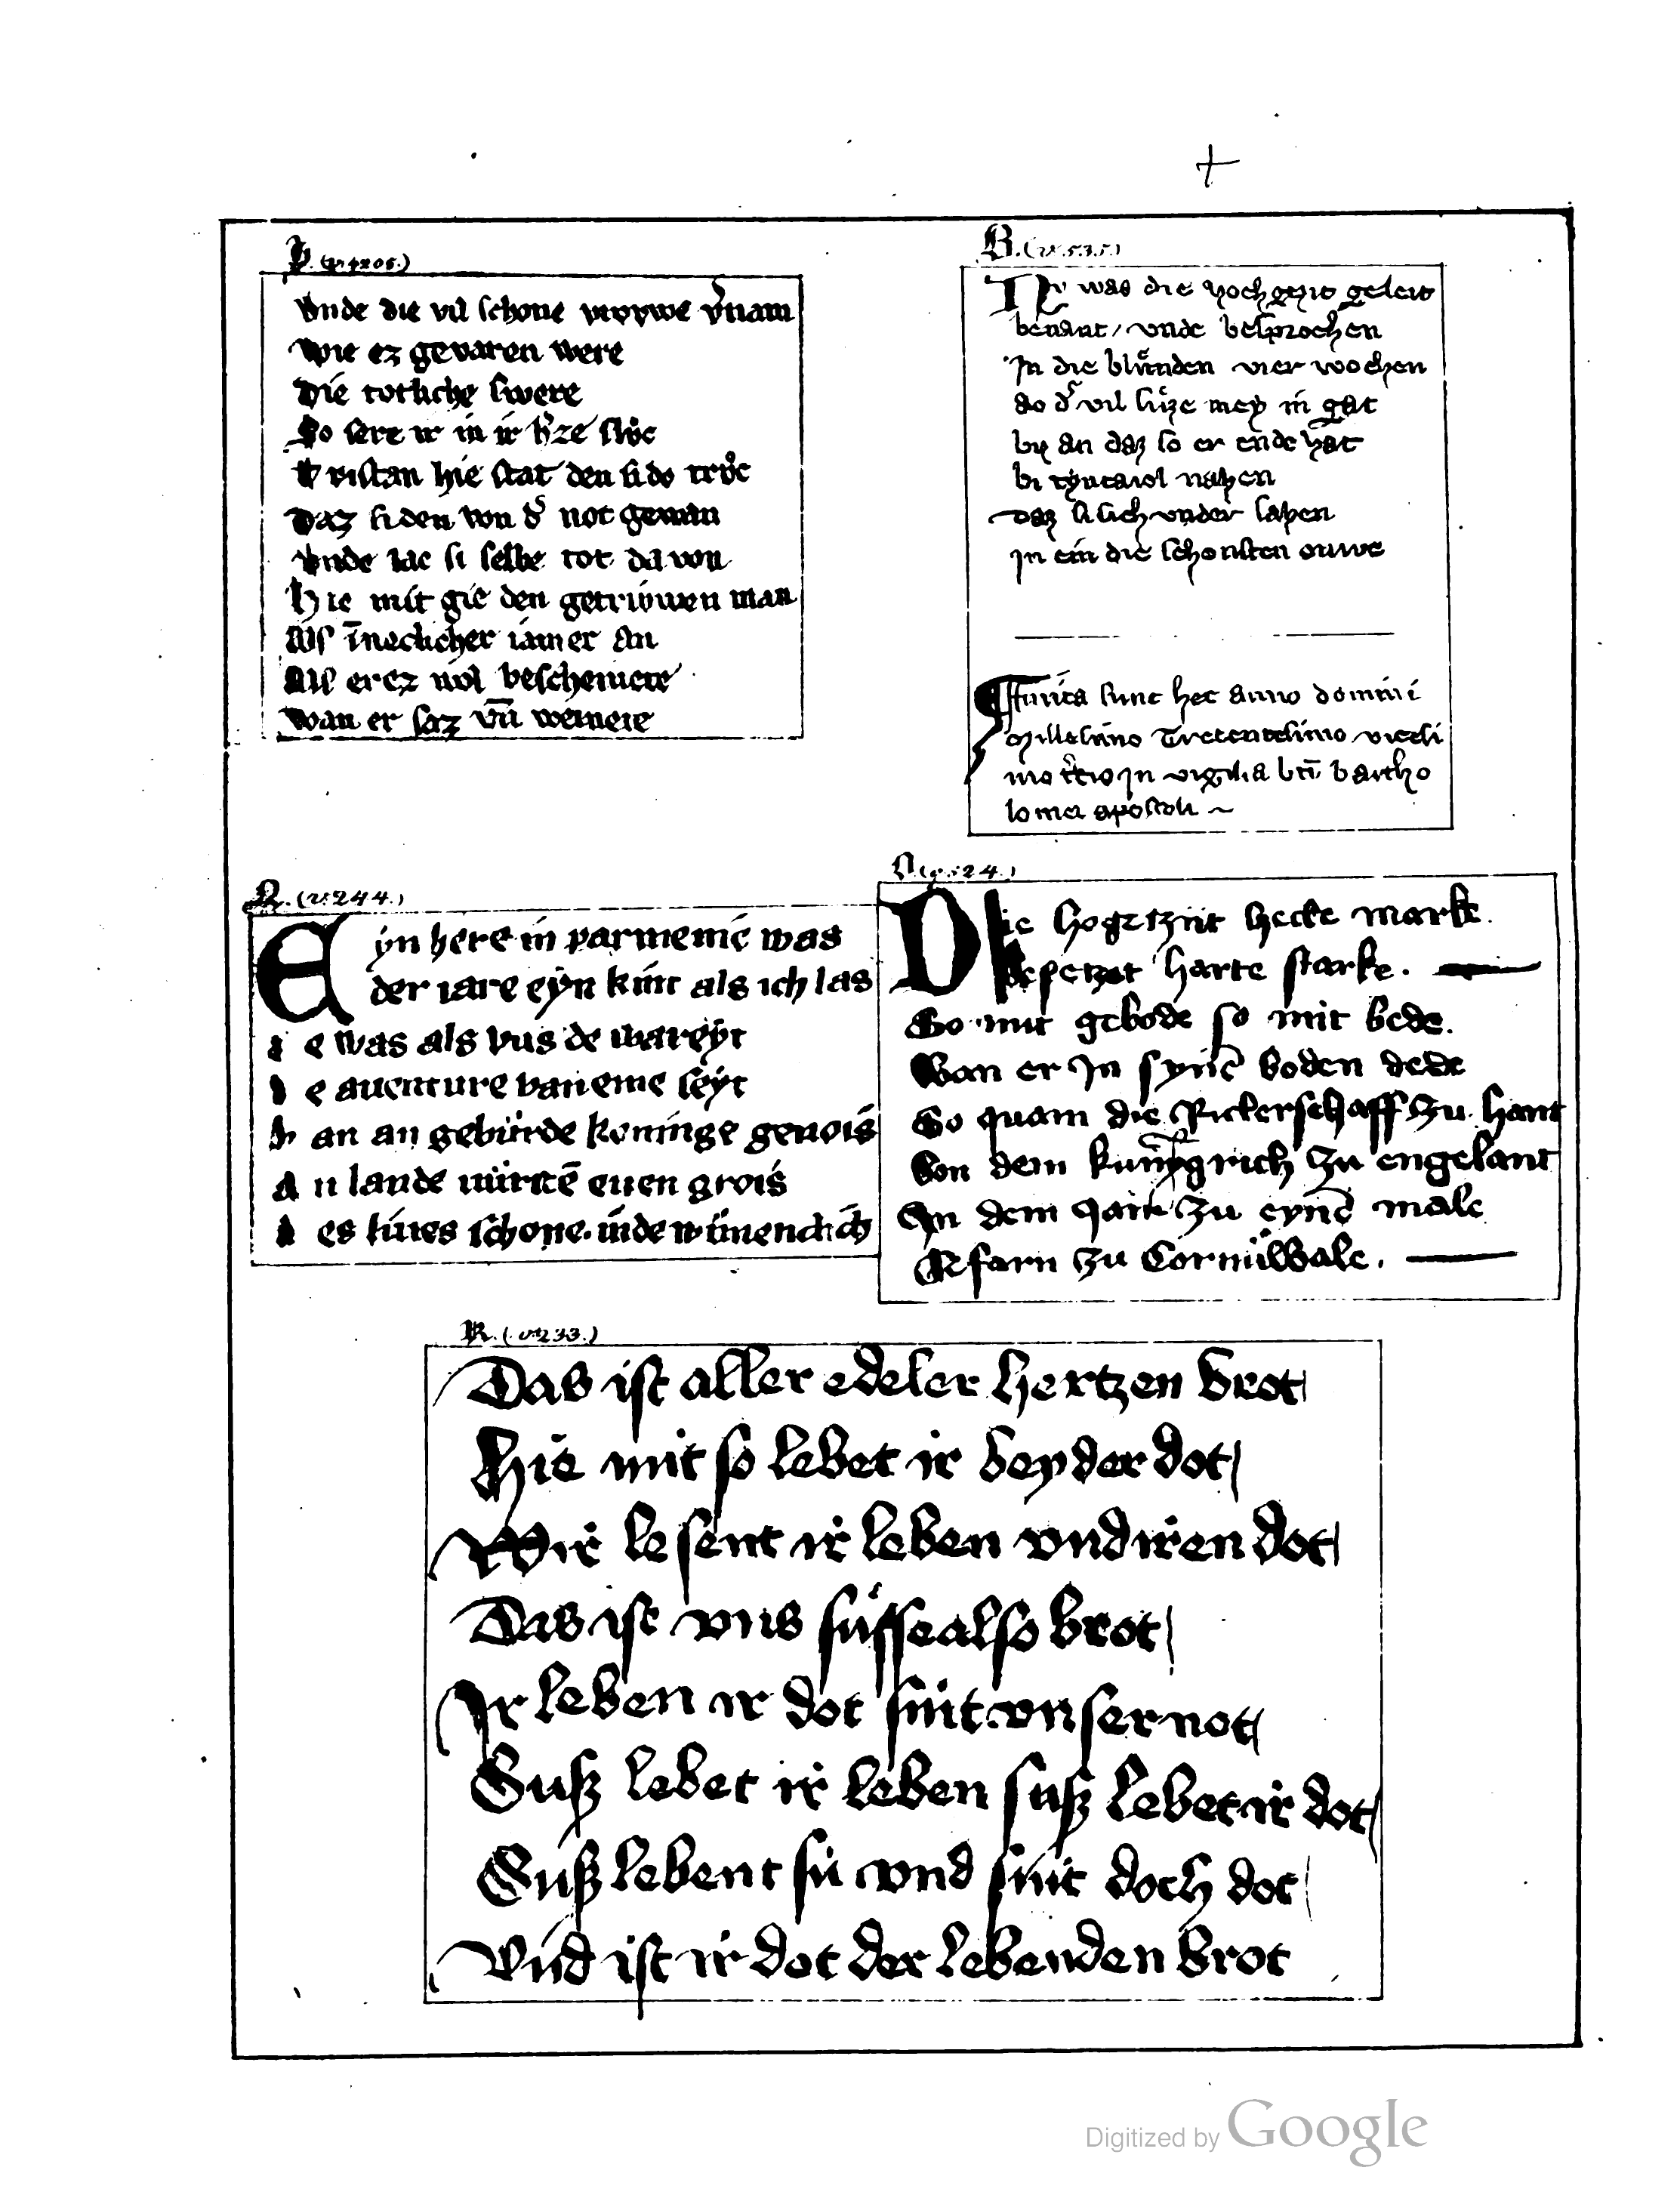 P. (v. 4205.)
vnde die vil schone vrovwe v̾nam
wie ez gevaren were
Die totliche swere
So sere ir in ir h̾ze slůc
Tristan hie stat den si do trůc
Daz si den von d̾ not gewan
vnde lac si selbe tot da von
Hie mit gie den getriwen man
Als īneclicher iamer an
Als er ez wol bescheinete
wan er saz vn̄ weinete
B. (v. 535.)
Nv was die hochgezit geleit
benant / vnde besprochen
In die blůnden vier wochen
so d̾ vil sůze mey in gat
biz an daz so er ende hat
bi tyntaiol nahen
Daz si sich vnder sahen
In ein die schonsten ouwe
ffinita sunt hec anno domini
Millesimo Trecentesimo vicesi
mo t̾cio in vigilia bt̄i bartho
lomei apostoli ~
N. (v. 244.)
Eyn here in parmenie was
der iare eyn kint als ich las
d e was als vns de wareyt
d e auenture van eme seyt
v an an gebürde koninge genois
a n lande vürstē euen grois
d es liues schone. inde wūnenclich
(v. 524.)
Die hogetzijt hette marke.
Gesetzet harte starke.
So mit gebode so mit bede.
Wan er In synē boden dede
So quam die Ritterschaff zu hant
Von dem kunigrich zu engelant
In dem Jare zu eynē male
Gefarn zu Cornüwale.
R. (v. 233.)
Das ist aller edeler hertzen brot
Hie mit so lebet ir beyder dot
Wir lesent ir leben vnd iren dot
Das ist vns süsse also brot
Ir leben ir dot sint vnser not
Susz lebet ir leben susz lebet ir dot
Susz lebent sü vnd sint doch dot
Vnd ist ir dot der lebenden brot
Digitized by Google